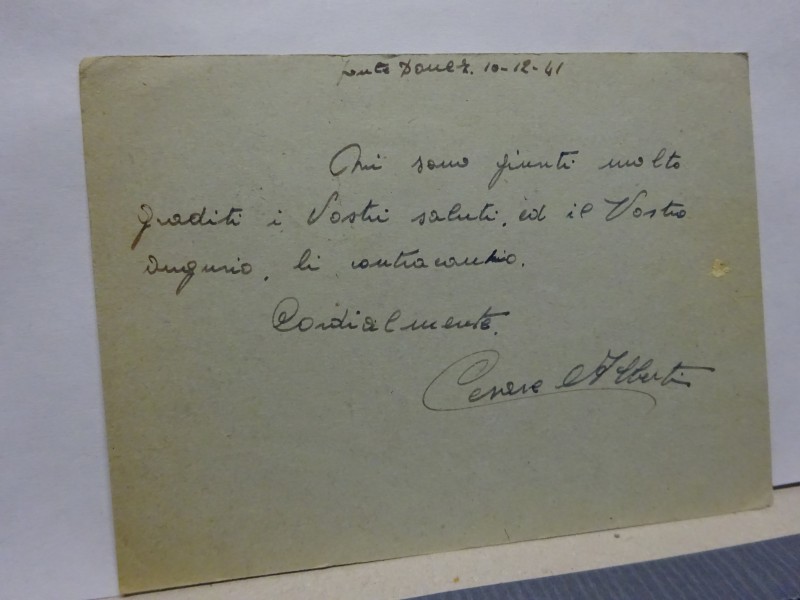 fronte Donez. 10-12-41
Mi sono giunti molto
graditi i Vostri saluti, ed il Vostro
augurio, li contraccambio.
Cordialmente.
Cesare Alberti